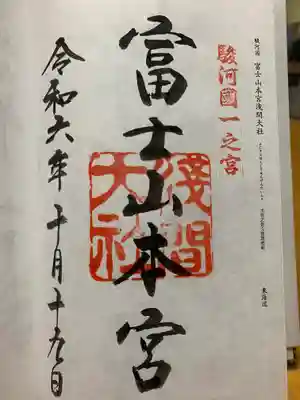 駿河国 富士山本宮浅間大社
東海道
駿河國一之宮
富士山本宮
淺間大社
令和六年 十月十九日